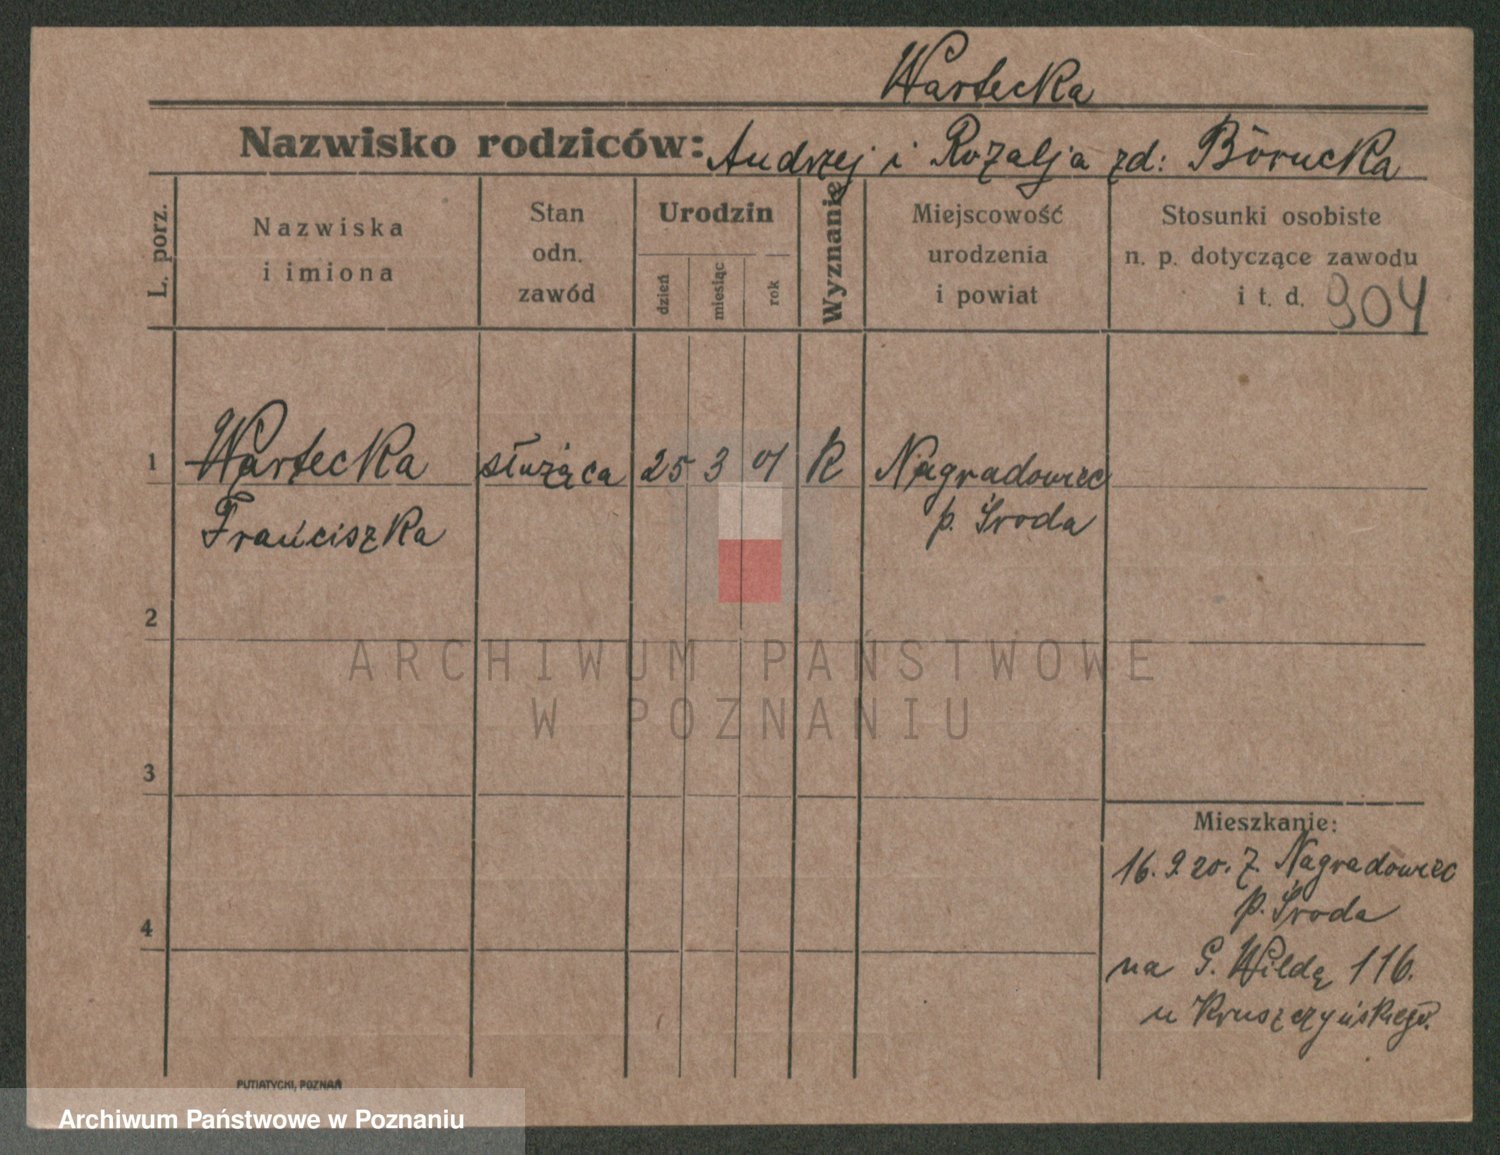 Wartecka
Nazwisko rodziców: Andrzej i Rozalja zd: Borucka
L. porz.
Nazwiska
i imiona
Stan
odn.
zawód
Urodzin
dzień
miesiąc
rok
Wyznanie
Miejscowość
urodzenia
i powiat
Stosunki osobiste
n. p. dotyczące zawodu
i t. d. 904
1 Wartecka służąca 25 3 01 K Nagradowiec
Franciszka p. Środa
2
3
4
ARCHIWUM PAŃSTWOWE
W POZNANIU
Mieszkanie:
16.9.20. z. Nagradowiec
p. Środa
na G. Wildę 116.
u Kruszczyńskiego.
PUTIATYCKI, POZNAŃ
Archiwum Państwowe w Poznaniu